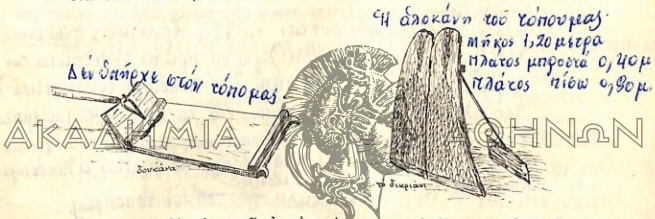 Ἡ ἁλοκάνη τοῦ τόπου μας.
Μῆκος 1,20 μέτρα
Πλάτος μπροστά 0,40 μ
Πλάτος πίσω 0,80 μ.
Δέν ὑπῆρχε στόν τόπο μας
ΑΚΑΔΗΜΙΑ ΑΘΗΝΩΝ
δουκάνα
το δικριάνι